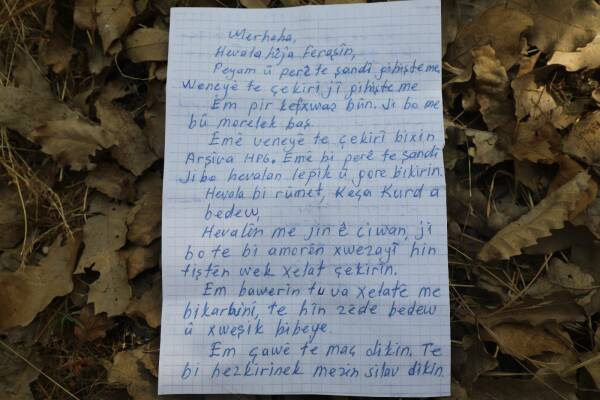 Merhaba,
Hevala hêja Feraşîn,
Peyam û perê te şandî pihişte me,
Weneyê te çekirî jî pihişte me
Em pir kefxwaş bûn. Ji bo me
bû morelek baş.
Emê veneyê te çekirî bixin
Arşîva HPG. Emê bi perê te şandî
Ji bo hevalan lepik û gore bikirin.
Hevala bi rûmet, Keça Kurd a
bedew,
Hevalên me jin ê ciwan, ji
bo te bi amorên xwezayî hin
tiştên wek xelat çekirîn.
Em bawerin tu va xelate me
bikarbînî, te hîn zêde bedew
û xweşik bibeye.
Em çawê te maç dikin. Te
bi hezkirinek mezin silav dikin